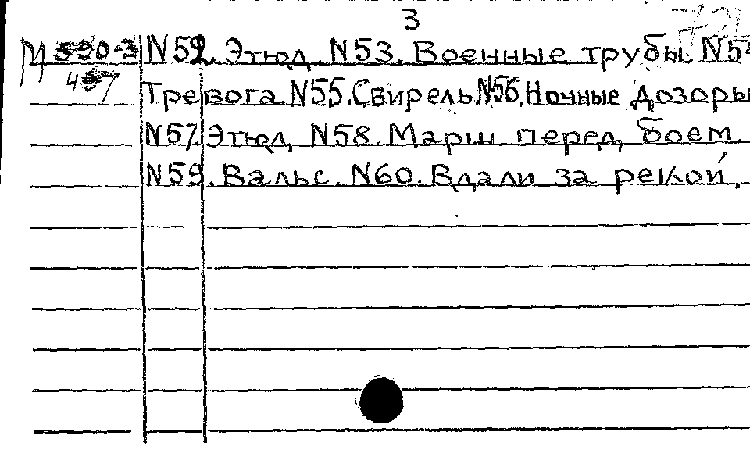 3
N52. Этюд N53. Военные трубы N54
Тревога N55. Свирель N56. Ночные дозоры
N57. Этюд N58. Марш перед боем
N59. Вальс. N60. Вдали за рекой.